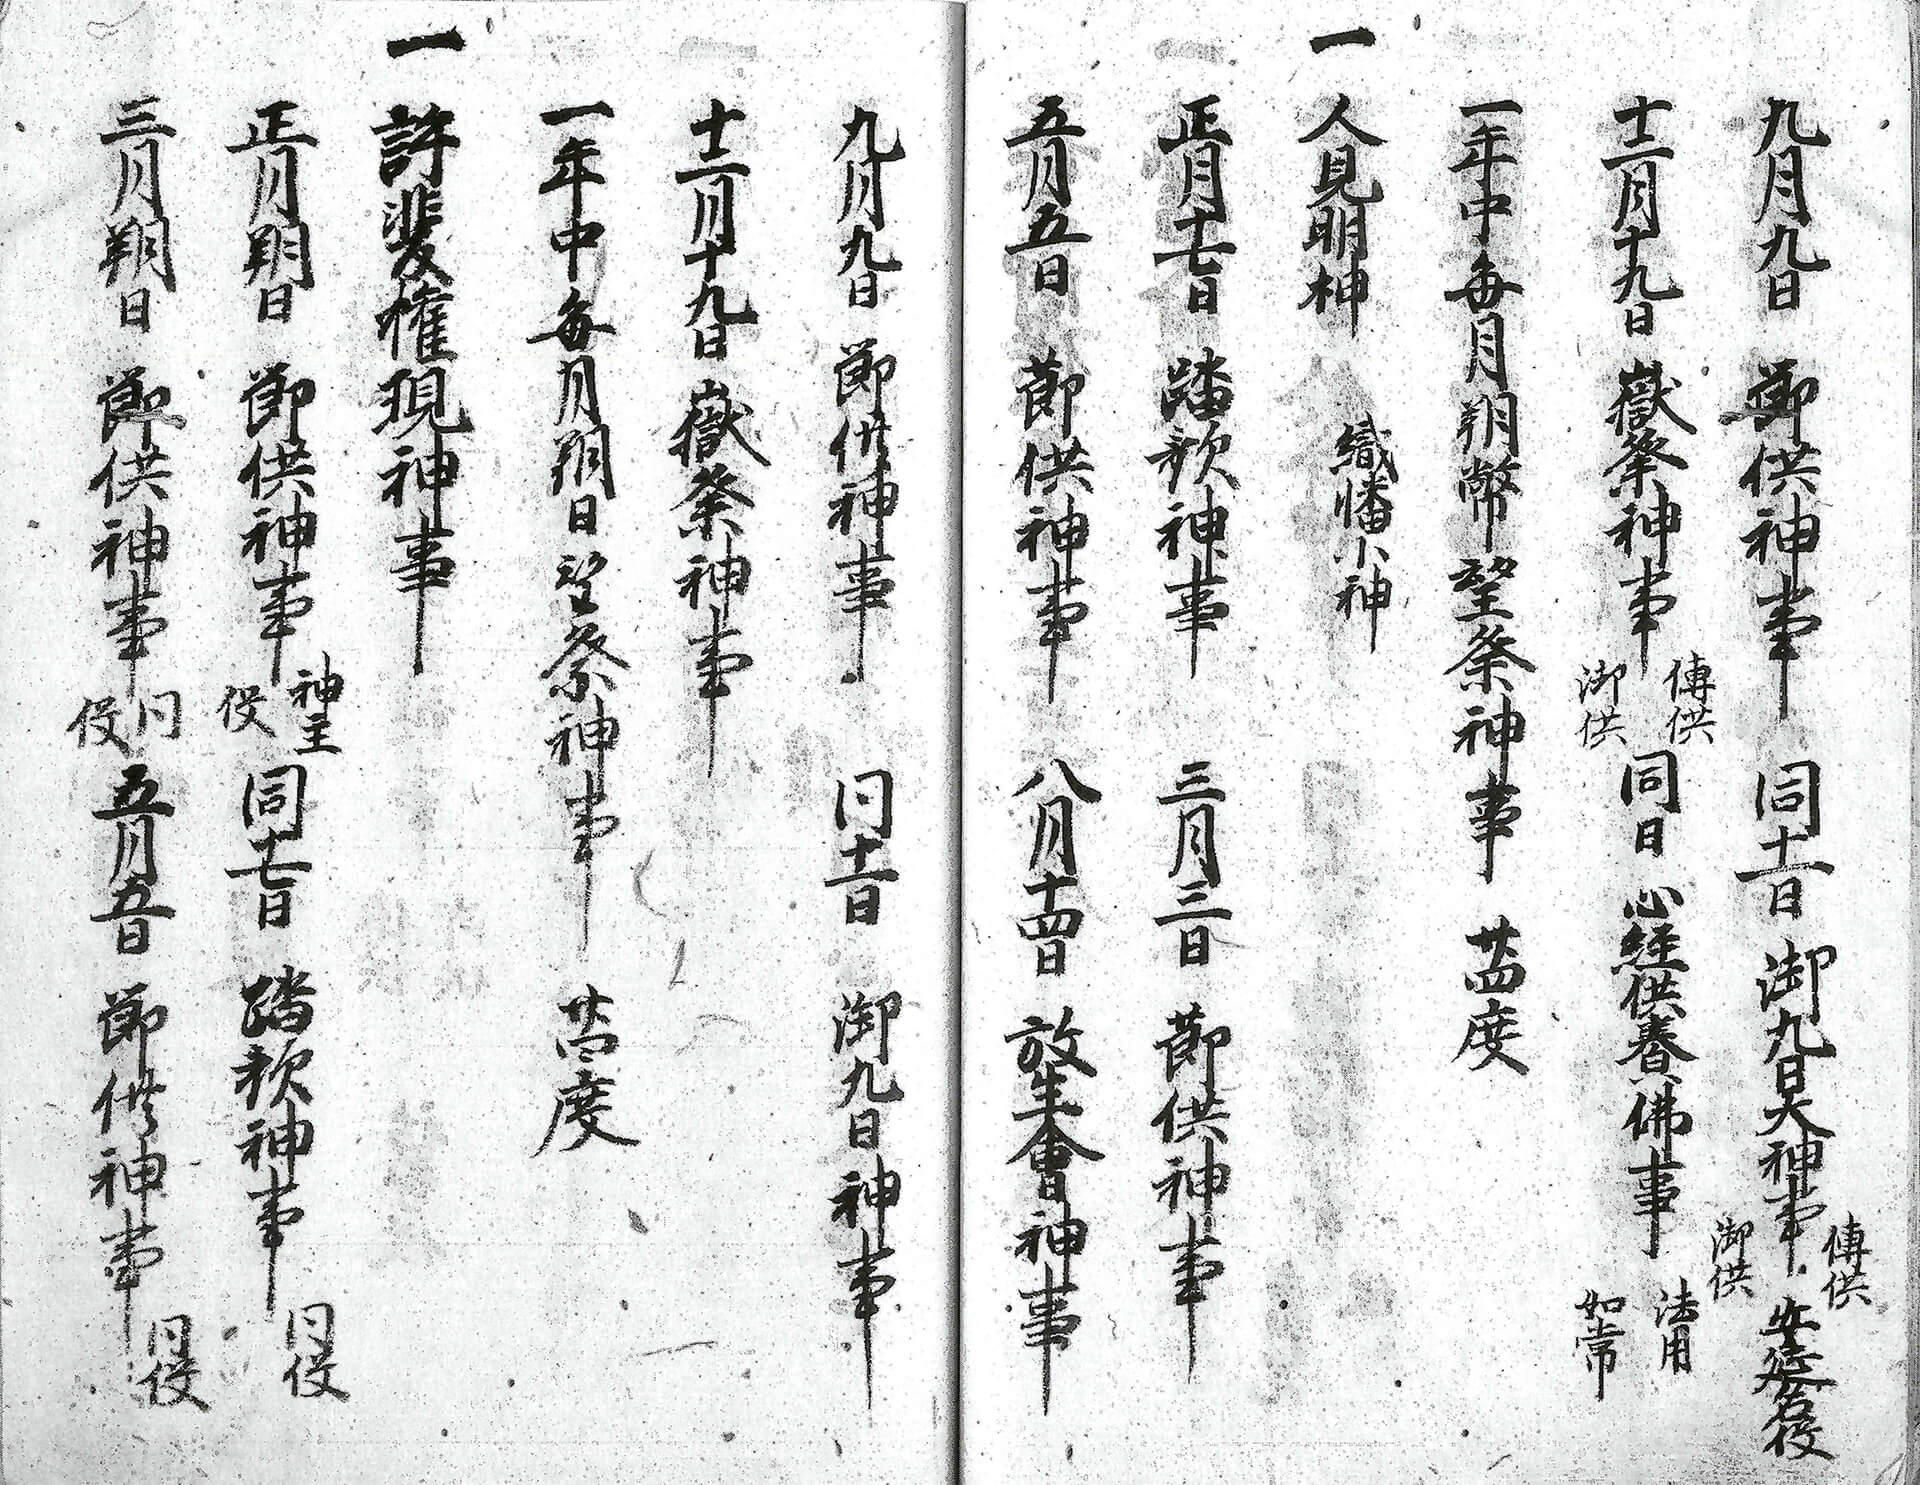 九月九日 節供神事 同十一日 御九日大神事 傳供 御供 安延名役
十二月十九日 嶽祭神事 傳供 御供 同日 心経供養佛事 法用 如常
一年中毎月朔幣望祭神事 廿四度
一 人見明神 織幡小神
正月十七日 踏歌神事 三月三日 節供神事
五月五日 節供神事 八月十四日 放生會神事
九月九日 節供神事 同十一日 御九日神事
十二月十九日 嶽祭神事
一年中毎月朔日望祭神事 廿四度
一 許斐権現神事
正月朔日 節供神事 神主 役 同十七日 踏歌神事 同役
三月朔日 節供神事 同役 五月五日 節供神事 同役